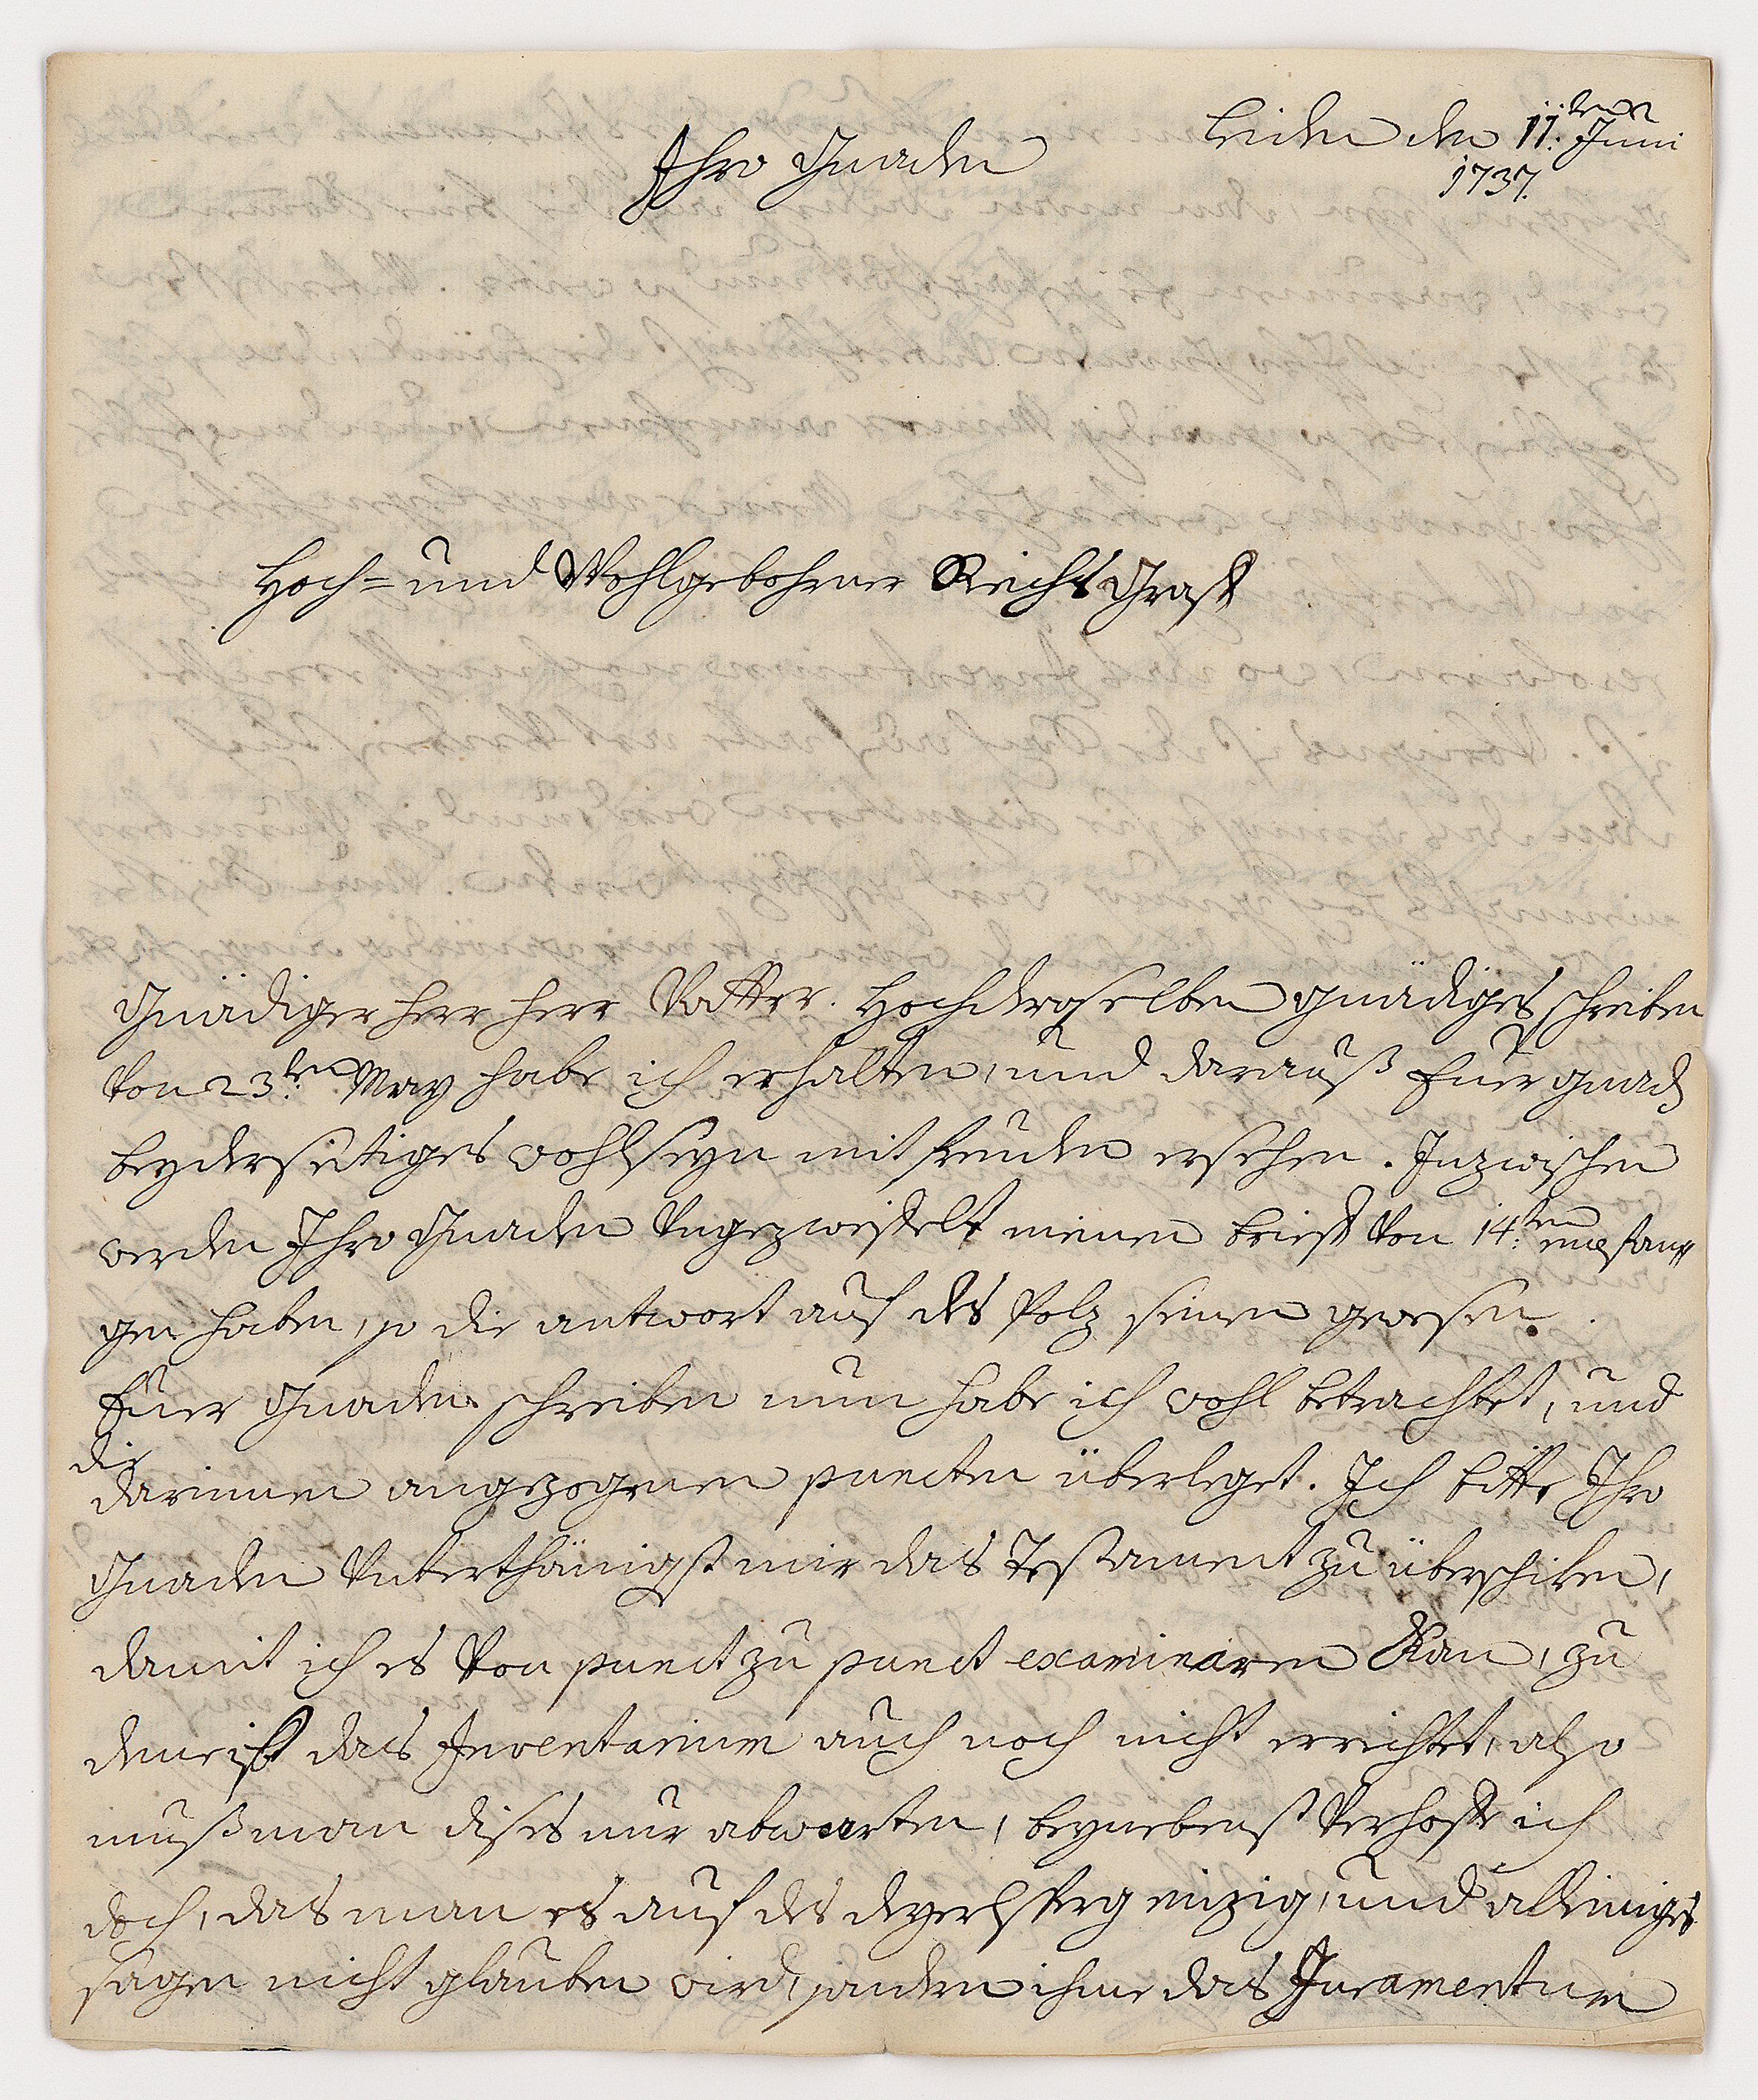 Leiden den 11.ten Juni
1737.
Ihro Gnaden
Hoch= und Wohlgebohrner Reichs Graff
Gnädiger herr herr Vatter. Hochderoselben gnädiges schreiben
von 23.ten May habe ich erhalten, und darauß Euer gnad
beyderseitiges wohlseyn mit freuden ersehen. Inzwischen
werden Ihro Gnaden Ungezweiffelt meinen brieff von 14.ten empfan=
gen haben, so die antwort auf des Polz seinen gewesen.
Euer Gnaden schreiben nun habe ich wohl betrachtet, und
die
darinnen angezogenen puncten überleget. Ich bitte Ihro
Gnaden Unterthänigst mir das Testament zu überschiken,
damit ich es von punct zu punct examiniren Kan, zu
deme ist das Inventarium auch noch nicht errichtet, also
muß man dises nur abwarten, beynebenst verhoffe ich
doch, das man es auf des einzig, und alleiniges
sagen nicht glauben wird, sondern ihme das Juramentum